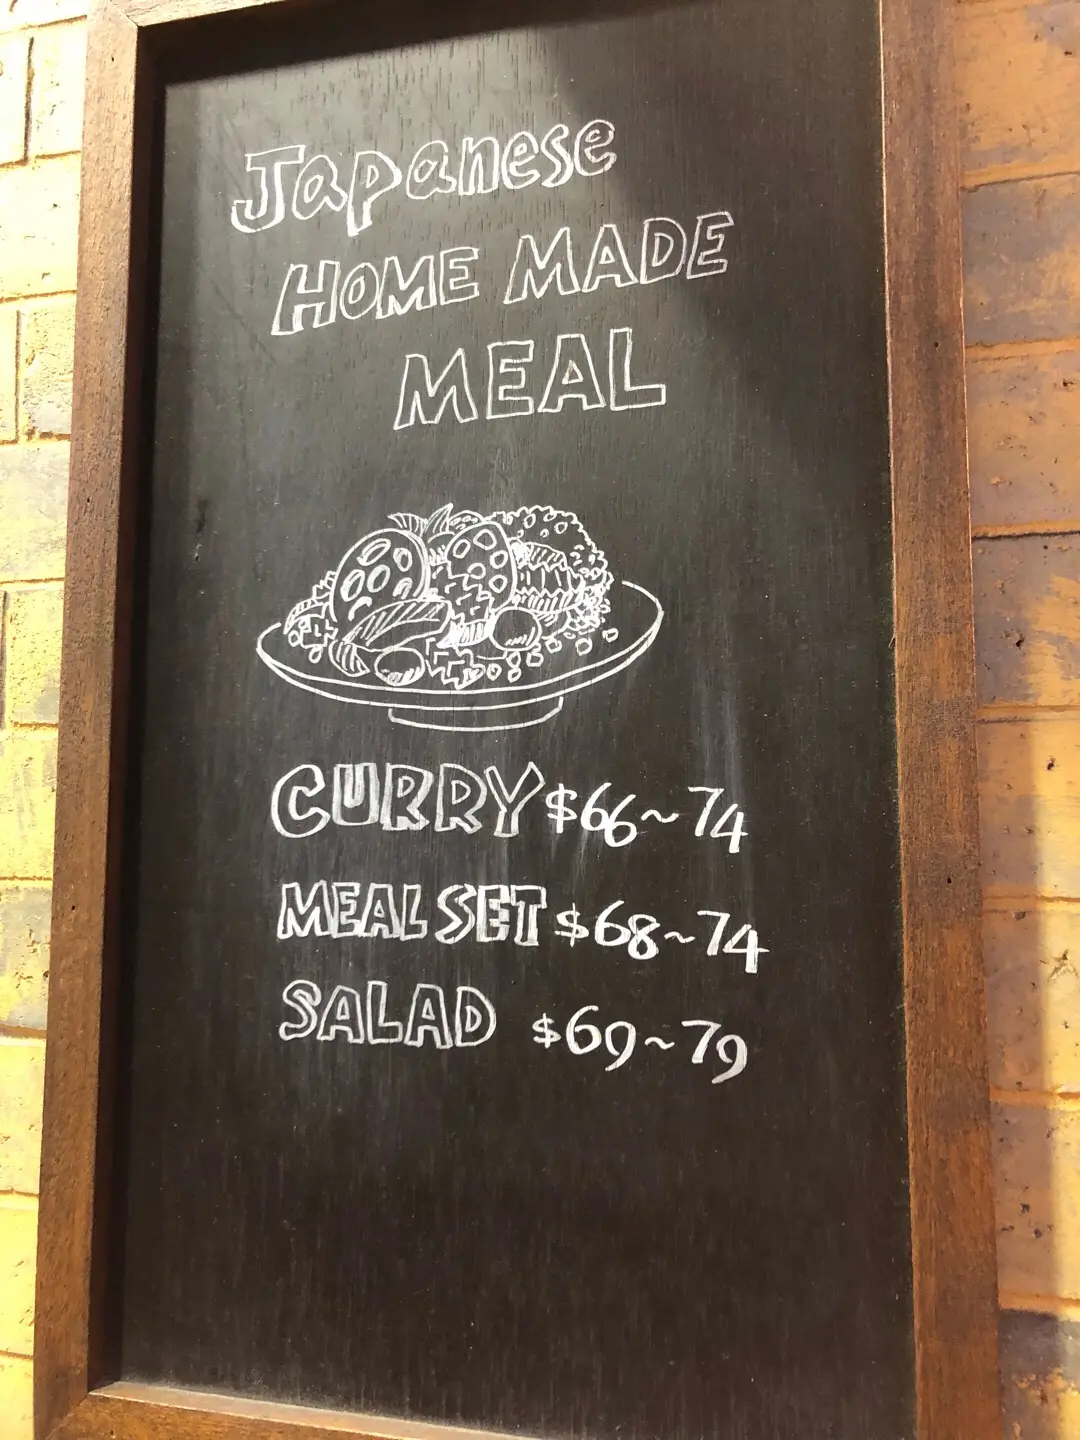 Japanese
HOME MADE
MEAL
CURRY $66~74
MEAL SET $68~74
SALAD $69~79